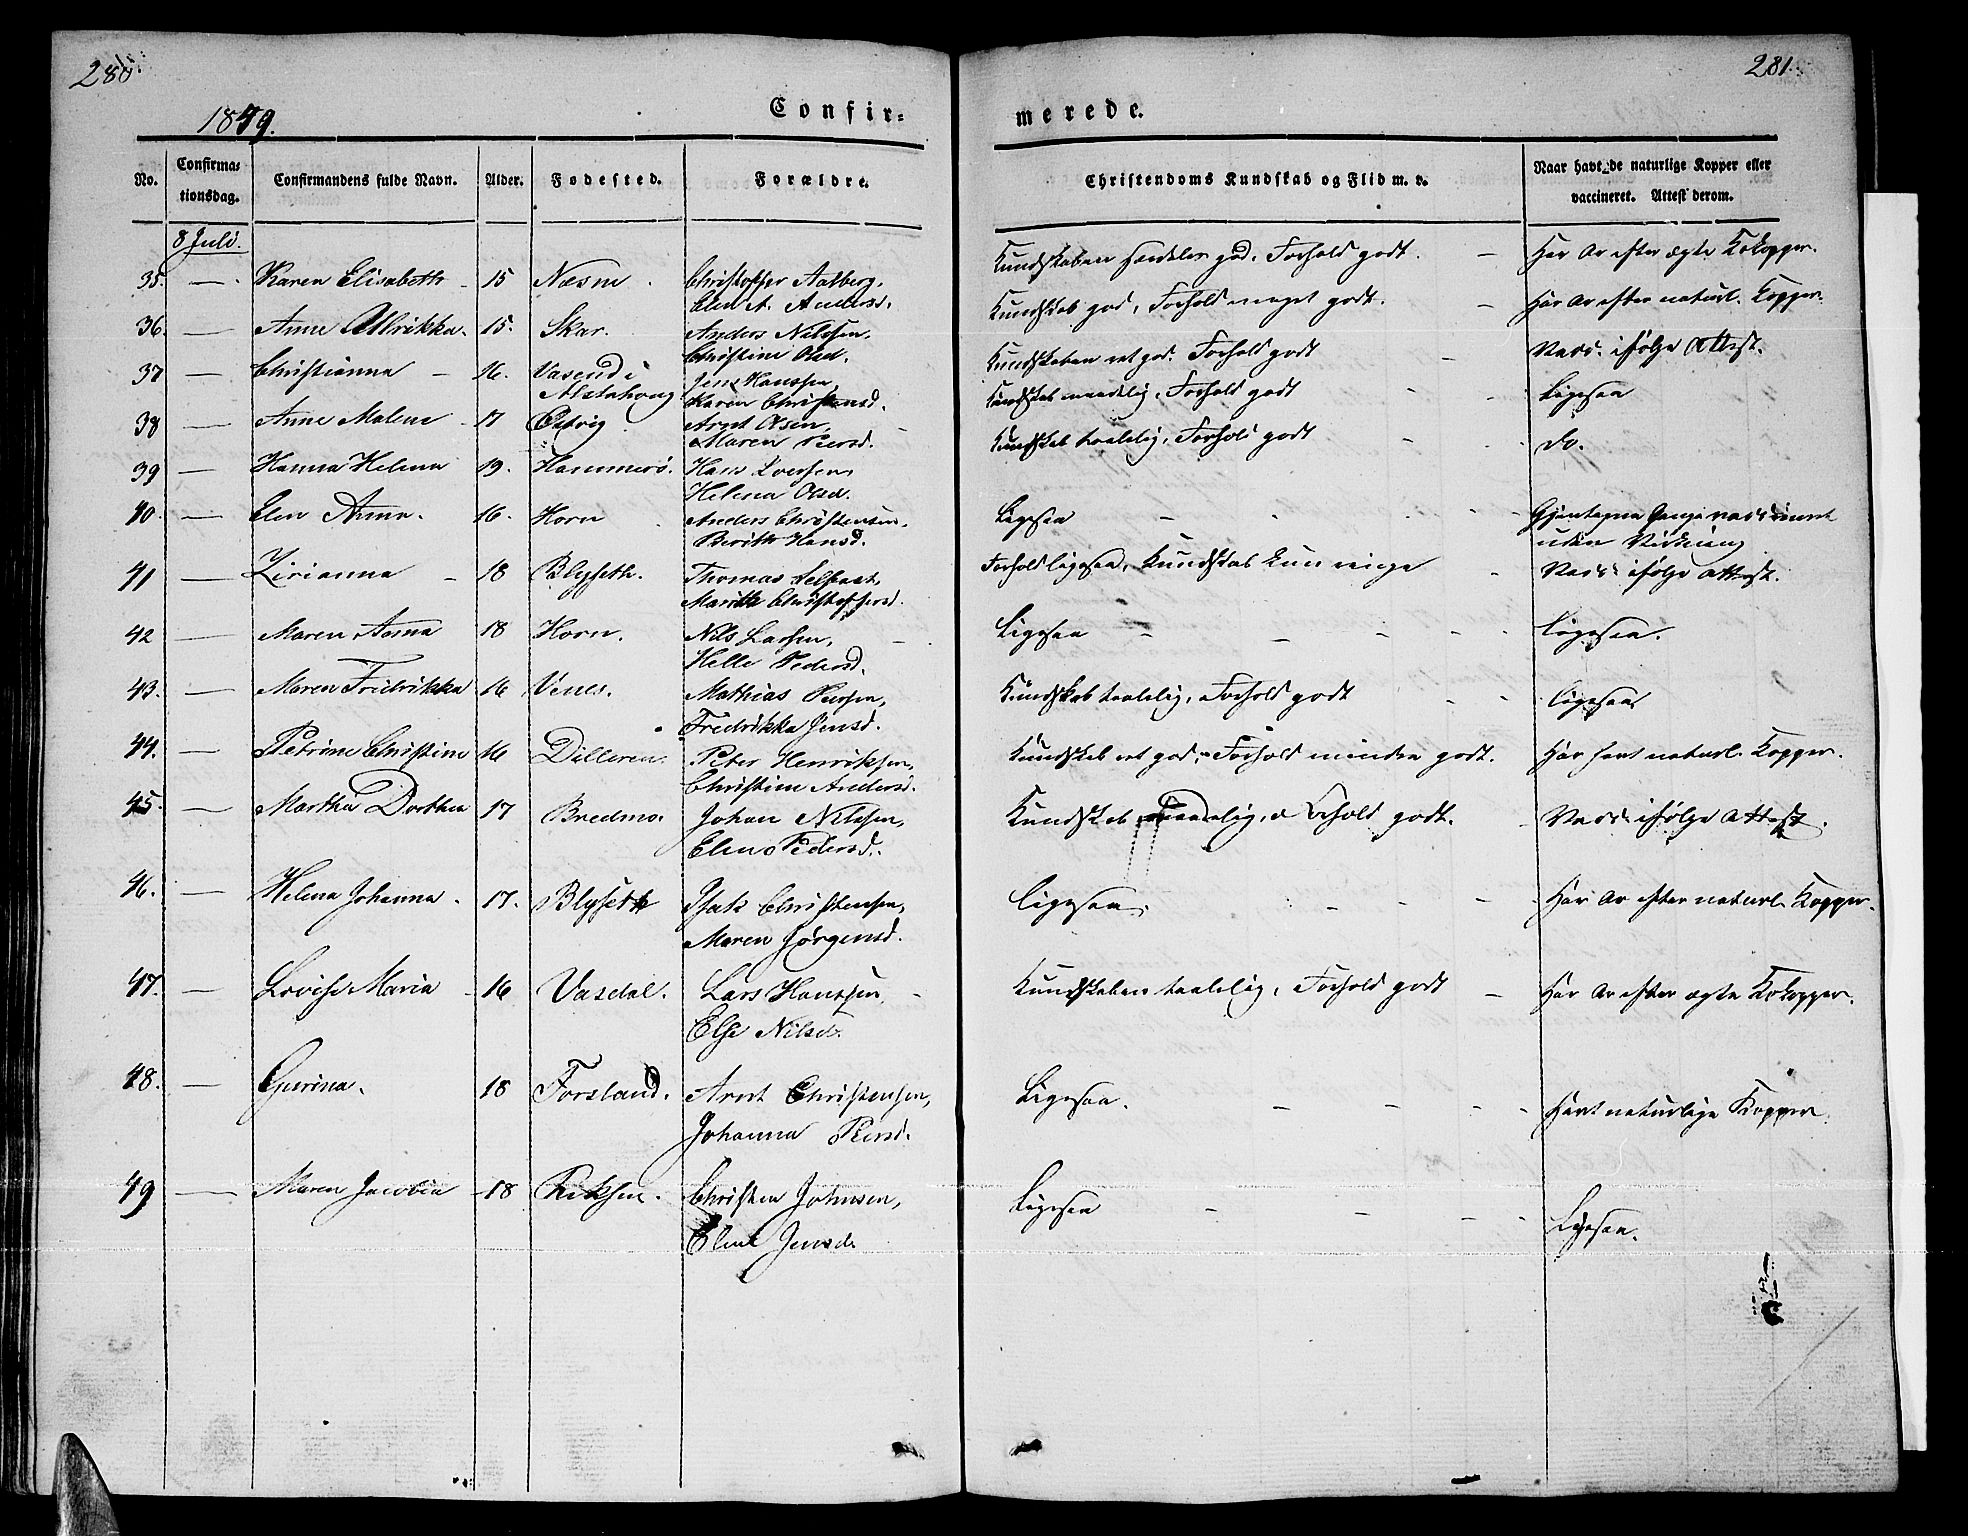 280.
1849.
Confir=
No.
Confirma=
tionsdag.
Confirmandens fulde Navn.
Alder.
Fødested.
Forældre.
8 Juli.
35. — Karen Elisabeth 15 Næsne Christopher Aalberg,
Elen A. Andersd.
36. — Anne Ullrikka. 15. Skar. Anders Nilssen,
Christine Olsd.
37 — Christianna 16. Vasend i Jens Hanssen,
Alstahoug Karen Christensd.
38 — Anne Malene 17 Estvig Arnt Olsen,
Maren Peersd.
39 — Hanna Helena 19. Hammerö. Hans Iversen,
Helena Olsd.
40. — Elen Anna. 16. Horn Anders Christensen,
Berith Hansd.
41 — Zirianna 18 Blyseth. Thomas
Marith Christoffersd.
42 — Maren Anna 18 Horn. Nils Larsen,
Helle Pedersd.
43. — Maren Fredrikka 16 Venes. Mathias Peersen,
Fredrikka Jensd.
44. — Petrine Christine 16 Dilleren. Peter Henriksen,
Christine Andersd.
45. — Martha Dorthea 17 Bredmo. Johan Nilssen,
Elen Pedersd.
46. — Helena Johanna. 17. Blyseth Isak Christensen,
Maren Jörgensd.
47. — Lovise Maria 16 Vasdal. Lars Hanssen
Else Nilsd.
48. — Gurina. 18 Forsland. Arnt Christensen,
Johanna Peersd.
49 — Maren Jacobia 18 Christen Johnsen,
Elen Jensd.
281.
merede.
Christendoms Kundskab og Flid m. v.
Naar havt de naturlige Kopper eller
vaccineret. Attest derom.
Kundskaben særdeles god, Forhold godt. — Har Ar efter ægte Kokopper.
Kundskab god, Forhold meget godt. — Har Ar efter naturl. Kopper.
Kundskaben ret god. Forhold godt — Vacc. ifølge Attest.
Kundskab maadelig, Forhold godt Ligesaa
Kundskab taalelig, Forhold godt do.
Ligesaa Gjentagne Gange vaccineret
uden Virkning
Forhold ligesaa, Kundskab kun ringe Vacc. ifølge Attest.
Ligesaa Ligesaa.
Kundskab taalelig, Forhold godt Ligesaa
Kundskab ret god, Forhold mindre godt. Har havt naturl. Kopper.
Kundskab maadelig, Forhold godt. Vacc. ifølge Attest.
Ligesaa. Har Ar efter naturl. Kopper.
Kundskaben taalelig, Forhold godt — Har Ar efter ægte Kokopper.
Ligesaa. Havt naturlige Kopper.
Ligesaa Ligesaa.